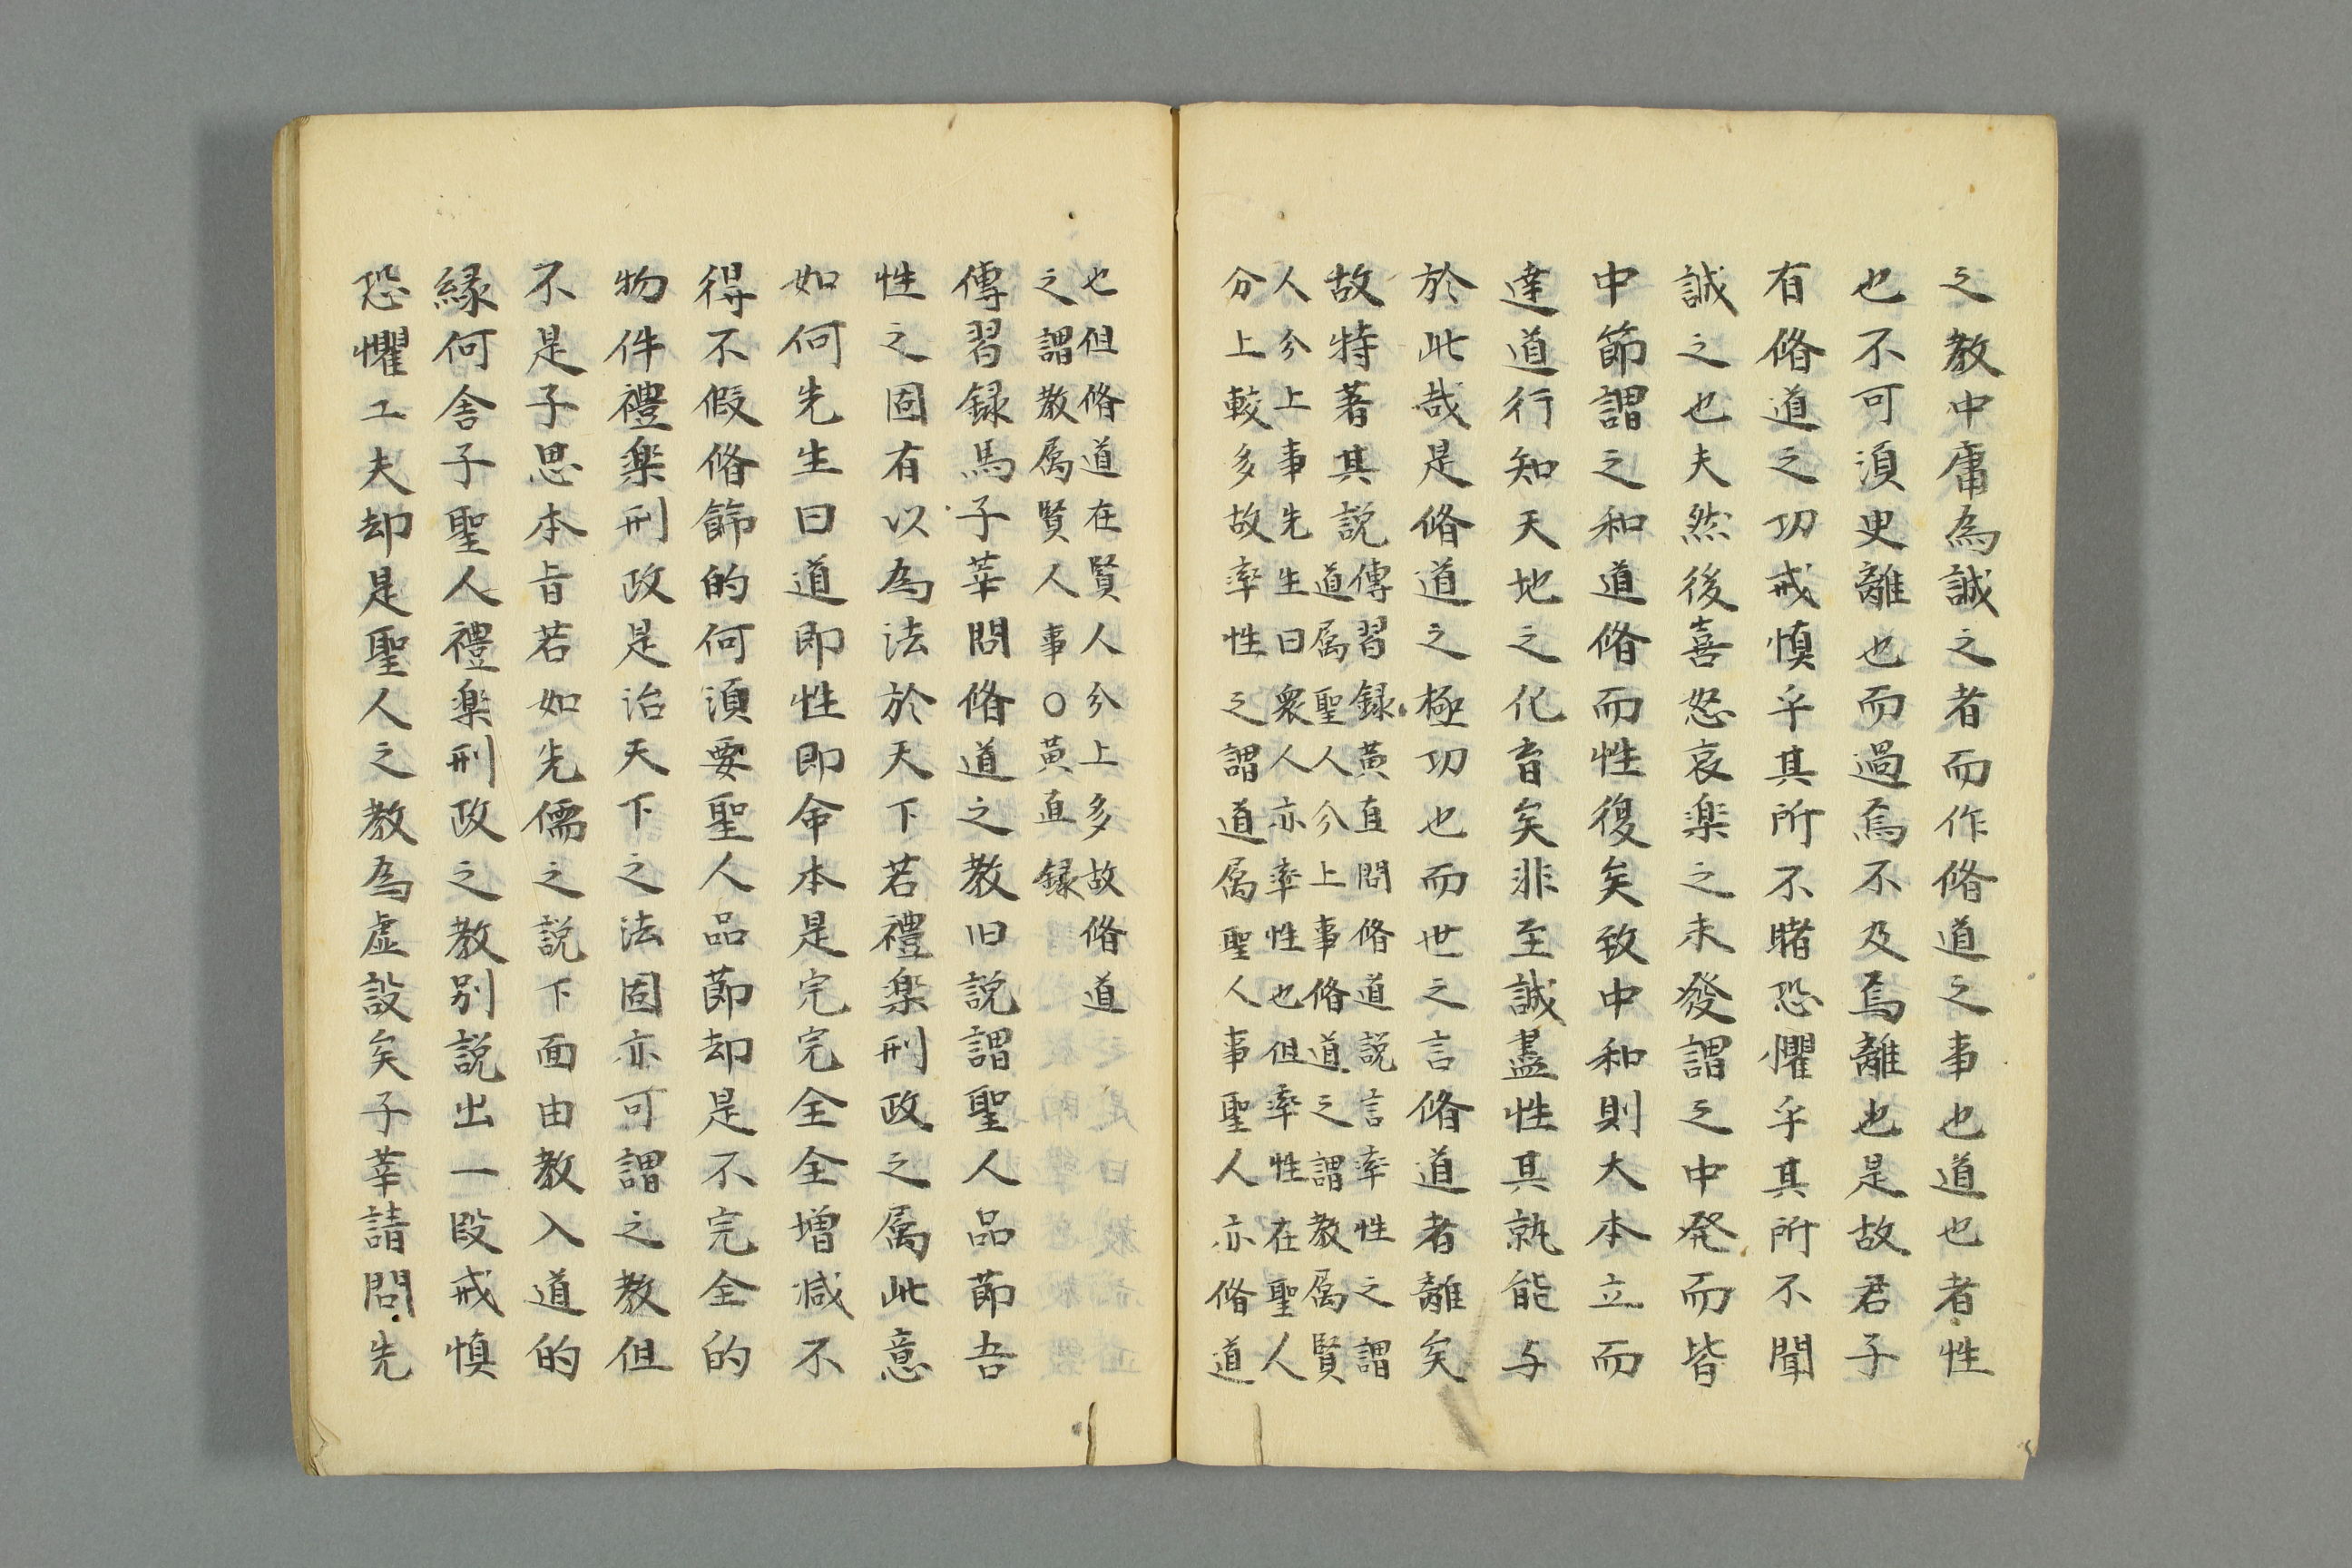 之教中庸為誠之者而作脩道之事也道也者性
也不可須臾離也而過焉不及焉離也是故君子
有脩道之功戒慎乎其所不睹恐懼乎其所不聞
誠之也夫然後喜怒哀楽之未發謂之中発而皆
中節謂之和道脩而性復矣致中和則大本立而
達道行知天地之化育矣非至誠盡性其孰能与
於此哉是脩道之極功也而世之言脩道者離矣
故特著其説
傳習録黄直問脩道説言率性之謂
道属聖人分上事脩道之謂教属賢
人分上事先生曰衆人亦率性也但率性在聖人
分上較多故率性之謂道属聖人事聖人亦脩道
也但脩道在賢人分上多故脩道
之謂教属賢人事○黄直録
傳習録馬子莘問脩道之教旧説謂聖人品節吾
性之固有以為法於天下若禮楽刑政之属此意
如何先生曰道即性即命本是完完全全増减不
得不假脩飾的何須要聖人品節却是不完全的
物件禮楽刑政是治天下之法固亦可謂之教但
不是子思本旨若如先儒之説下面由教入道的
縁何舎子聖人禮楽刑政之教別説出一段戒慎
恐懼工夫却是聖人之教為虚設矣子莘請問先